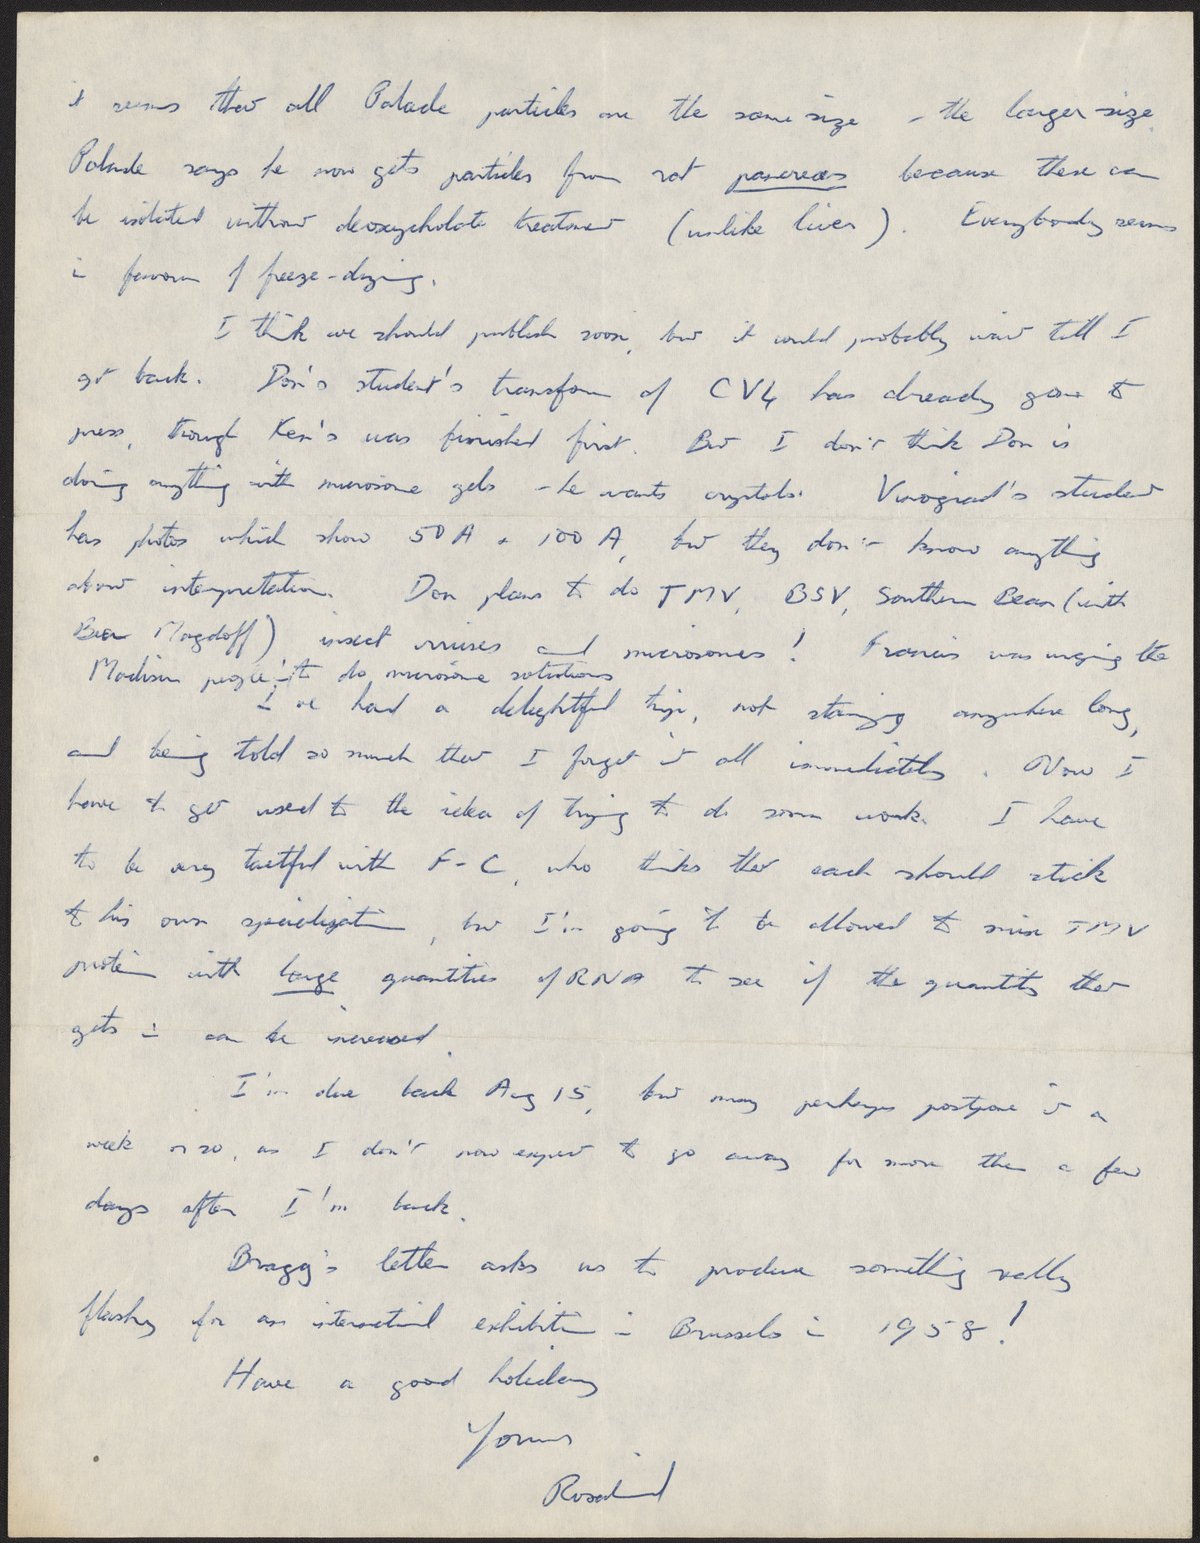 it seems that all Palade particles are the same size - the larger size.
Palade says he now gets particles from rat pancreas because these can
be isolated without deoxycholate treatment (unlike liver). Everybody seems
in favour of freeze-drying.
I think we should publish soon, but it could probably wait till I
get back. Don's student's transform of CV4 has already gone to
press, though Ken's was finished first. But I don't think Don is
doing anything with microsome gels - he wants crystals. Vinograd's student
has photos which show 50 A + 100 A, but they don't know anything
about interpretation. Don plans to do TMV, BSV, Southern Bean (with
Bea Magdoff) insect viruses and microsomes! Francis was urging the
Madison people to do microsome solutions
I've had a delightful trip, not staying anywhere long,
and being told so much that I forget it all immediately. Now I
have to get used to the idea of trying to do some work. I have
to be very tactful with F-C, who thinks that each should stick
to his own specialization, but I'm going to be allowed to mix TMV
protein with large quantities of RNA to see if the quantity that
gets in can be increased.
I'm due back Aug 15, but may perhaps postpone it a
week or so, as I don't now expect to go away for more than a few
days after I'm back.
Bragg's letter asks us to produce something really
flashy for an international exhibition in Brussels in 1958!
Have a good holiday
Yours
Rosalind